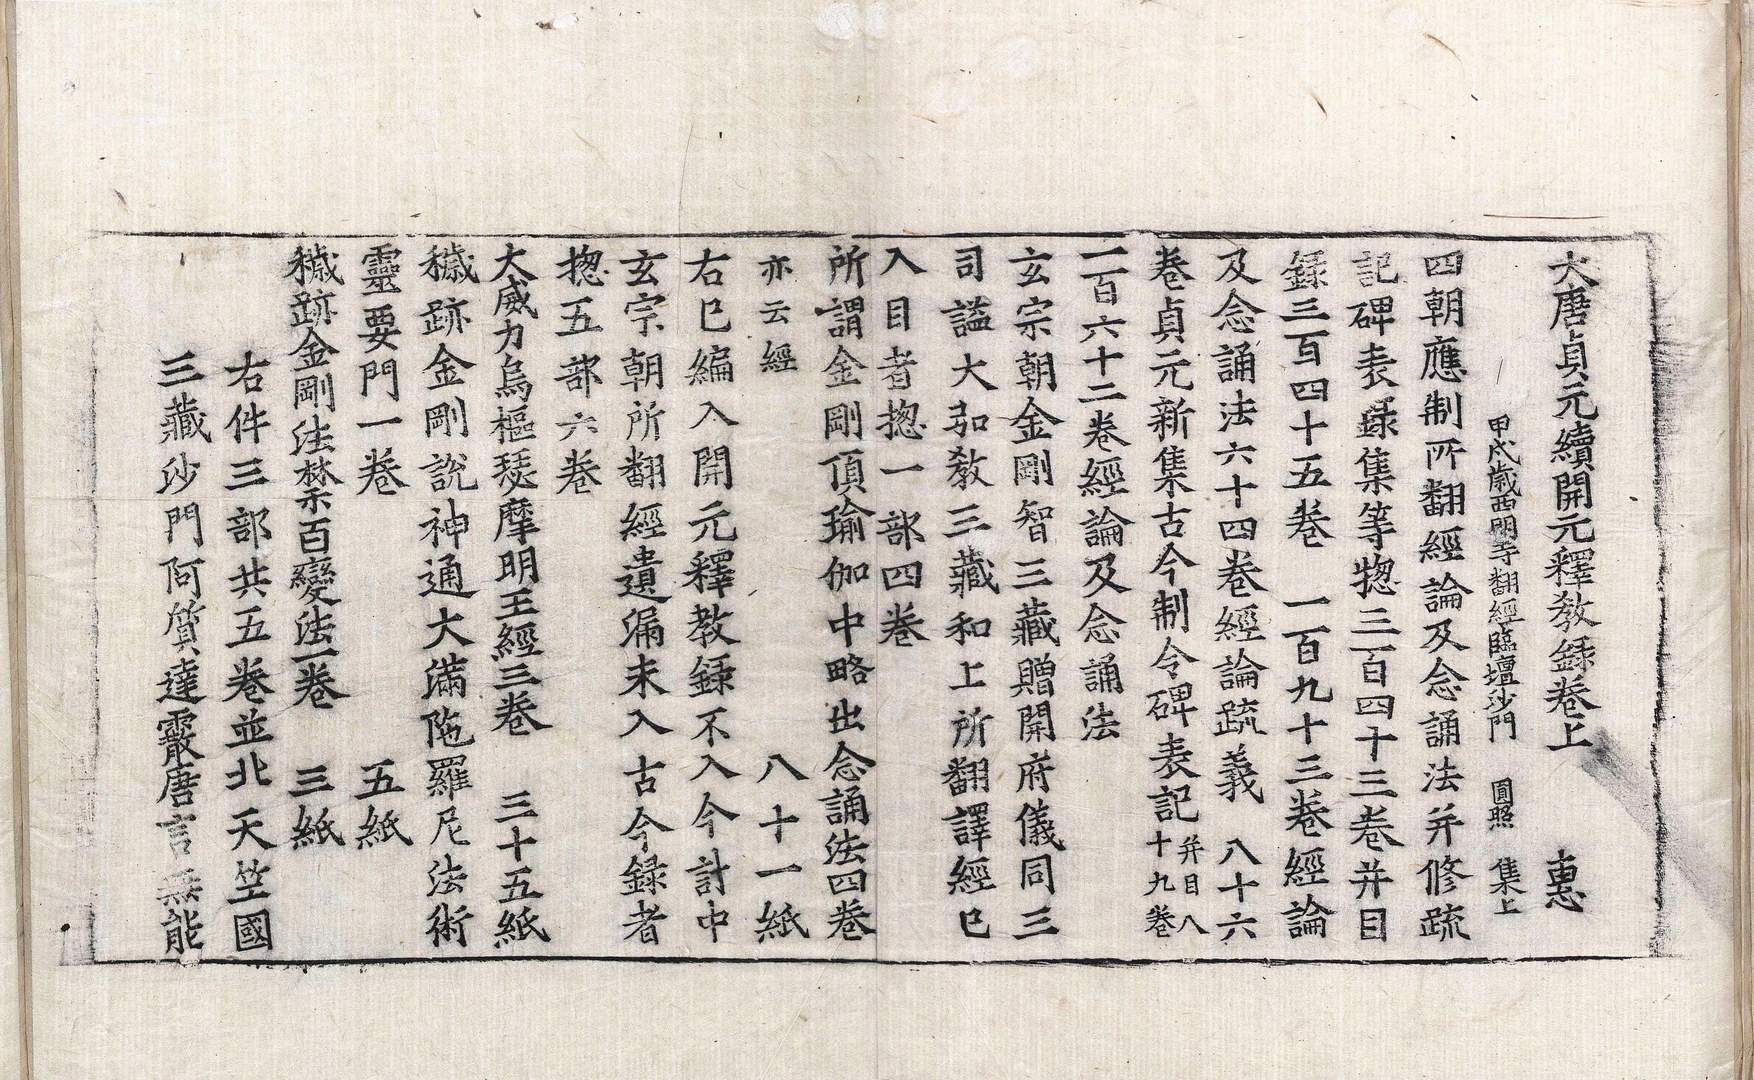 大唐貞元續開元釋敎録卷上 惠
甲戌歲西明寺翻經臨壇沙門 圓照 集上
四朝應制所翻經論及念誦法并修疏
記碑表録集等揔三百四十三卷并目
録三百四十五卷 一百九十三卷經論
及念誦法六十四卷經論疏義 八十六
卷貞元新集古今制令碑表記并目八十九卷
一百六十二卷經論及念誦法
玄宗朝金剛智三藏贈開府儀同三
司謚大弘敎三藏和上所翻譯經已
入目者揔一部四卷
所謂金剛頂瑜伽中略出念誦法四卷
亦云經 八十一紙
右已編入開元釋教録不入今計中
玄宗朝所翻經遺漏未入古今録者
揔五部六卷
大威力烏樞瑟摩明王經三卷 三十五紙
穢跡金剛說神通大滿陁羅尼法術
靈要門一卷 五紙
穢跡金剛法禁百變法一卷 三紙
右件三部共五卷並北天竺國
三藏沙門阿質達霰唐言無能